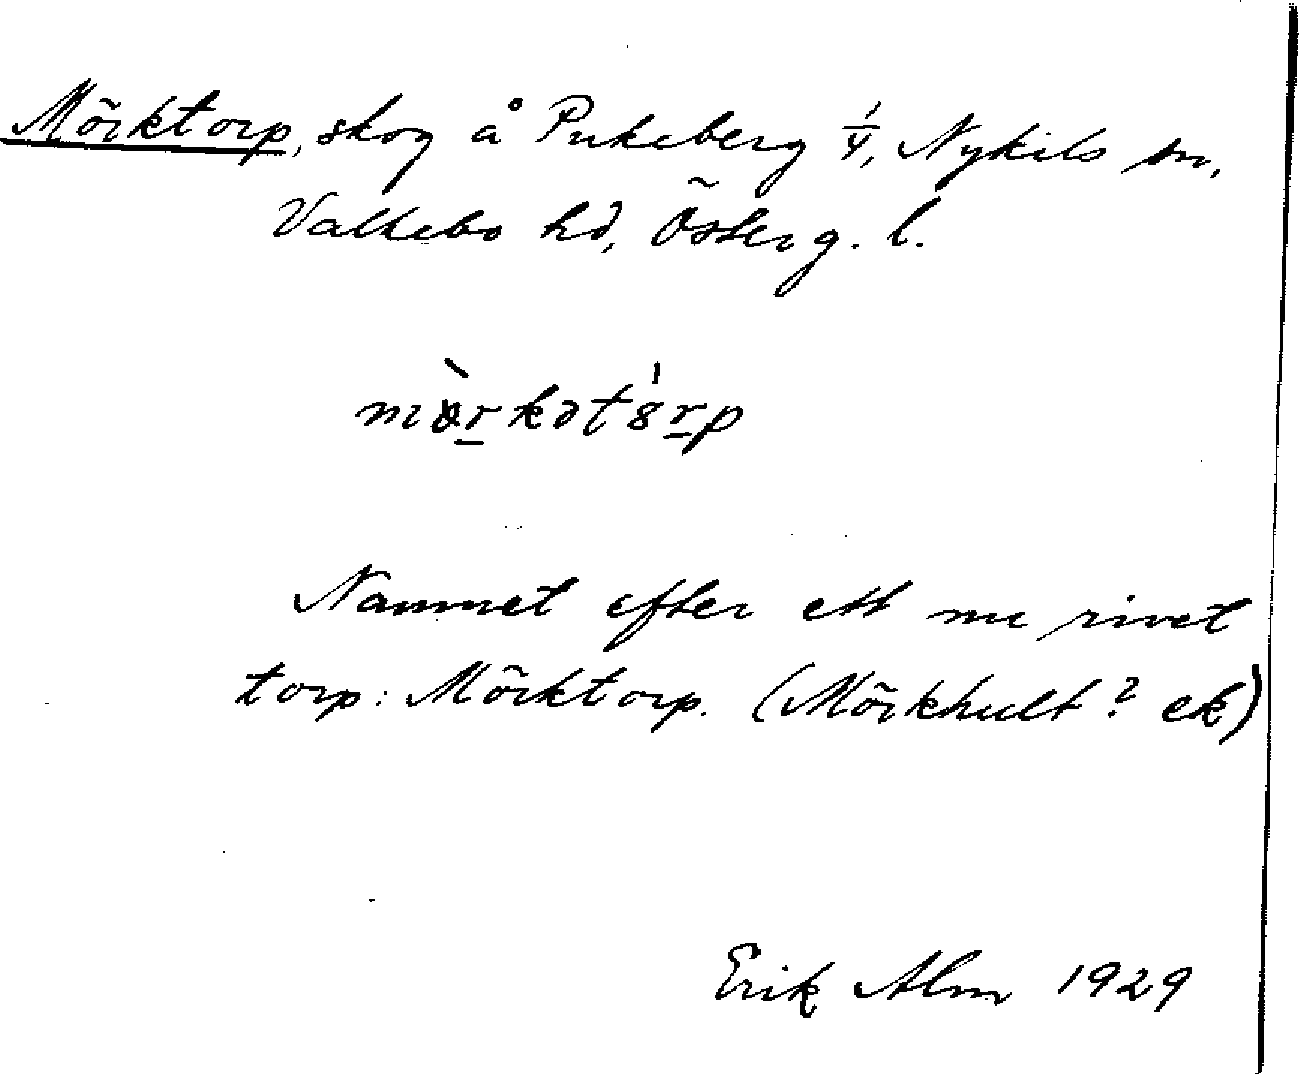 Mörktorp, skog å Pukeberg 1/4, Nykils sn,
Valkebo hd, Österg. l.
mörkət8rp
Namnet efter ett nu rivet
torp: Mörktorp. (Mörkhult? ek)
Erik Alm 1929